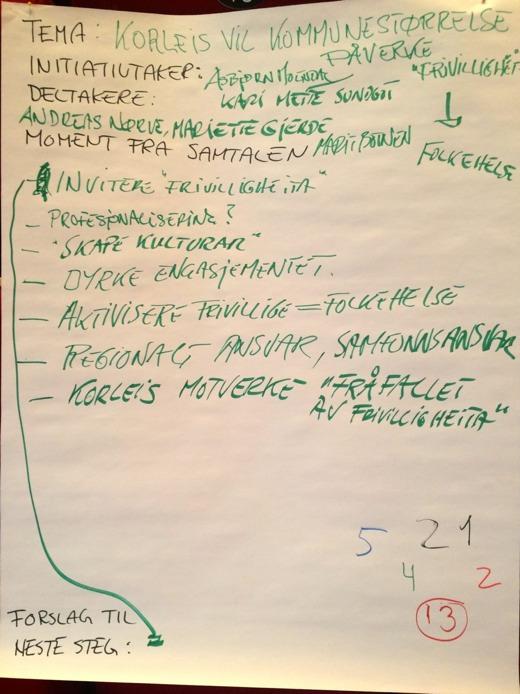 TEMA: KORLEIS VIL KOMMUNESTØRRELSE
PÅVERKE
"FRIVILLIGHET"
INITIATIVTAKER:
DELTAKERE: KARI METTE SUNDGOT
ANDREAS NØRVE, MARIETTE GJERDE
FOLKEHELSE
MOMENT FRA SAMTALEN MARIT BOTNEN
INVITERE "FRIVILLIGHEITA"
- PROFESJONALISERING?
- "SKAPE KULTURAR"
- DYRKE ENGASJEMENTET.
- AKTIVISERE FRIVILLIGE = FOLKEHELSE
- REGIONALT ANSVAR, SAMFUNNSANSVAR
- KORLEIS MOTVERKE "FRÅFALLET
AV FRIVILLIGHEITA"
5 21
4 2
13
FORSLAG TIL
NESTE STEG: